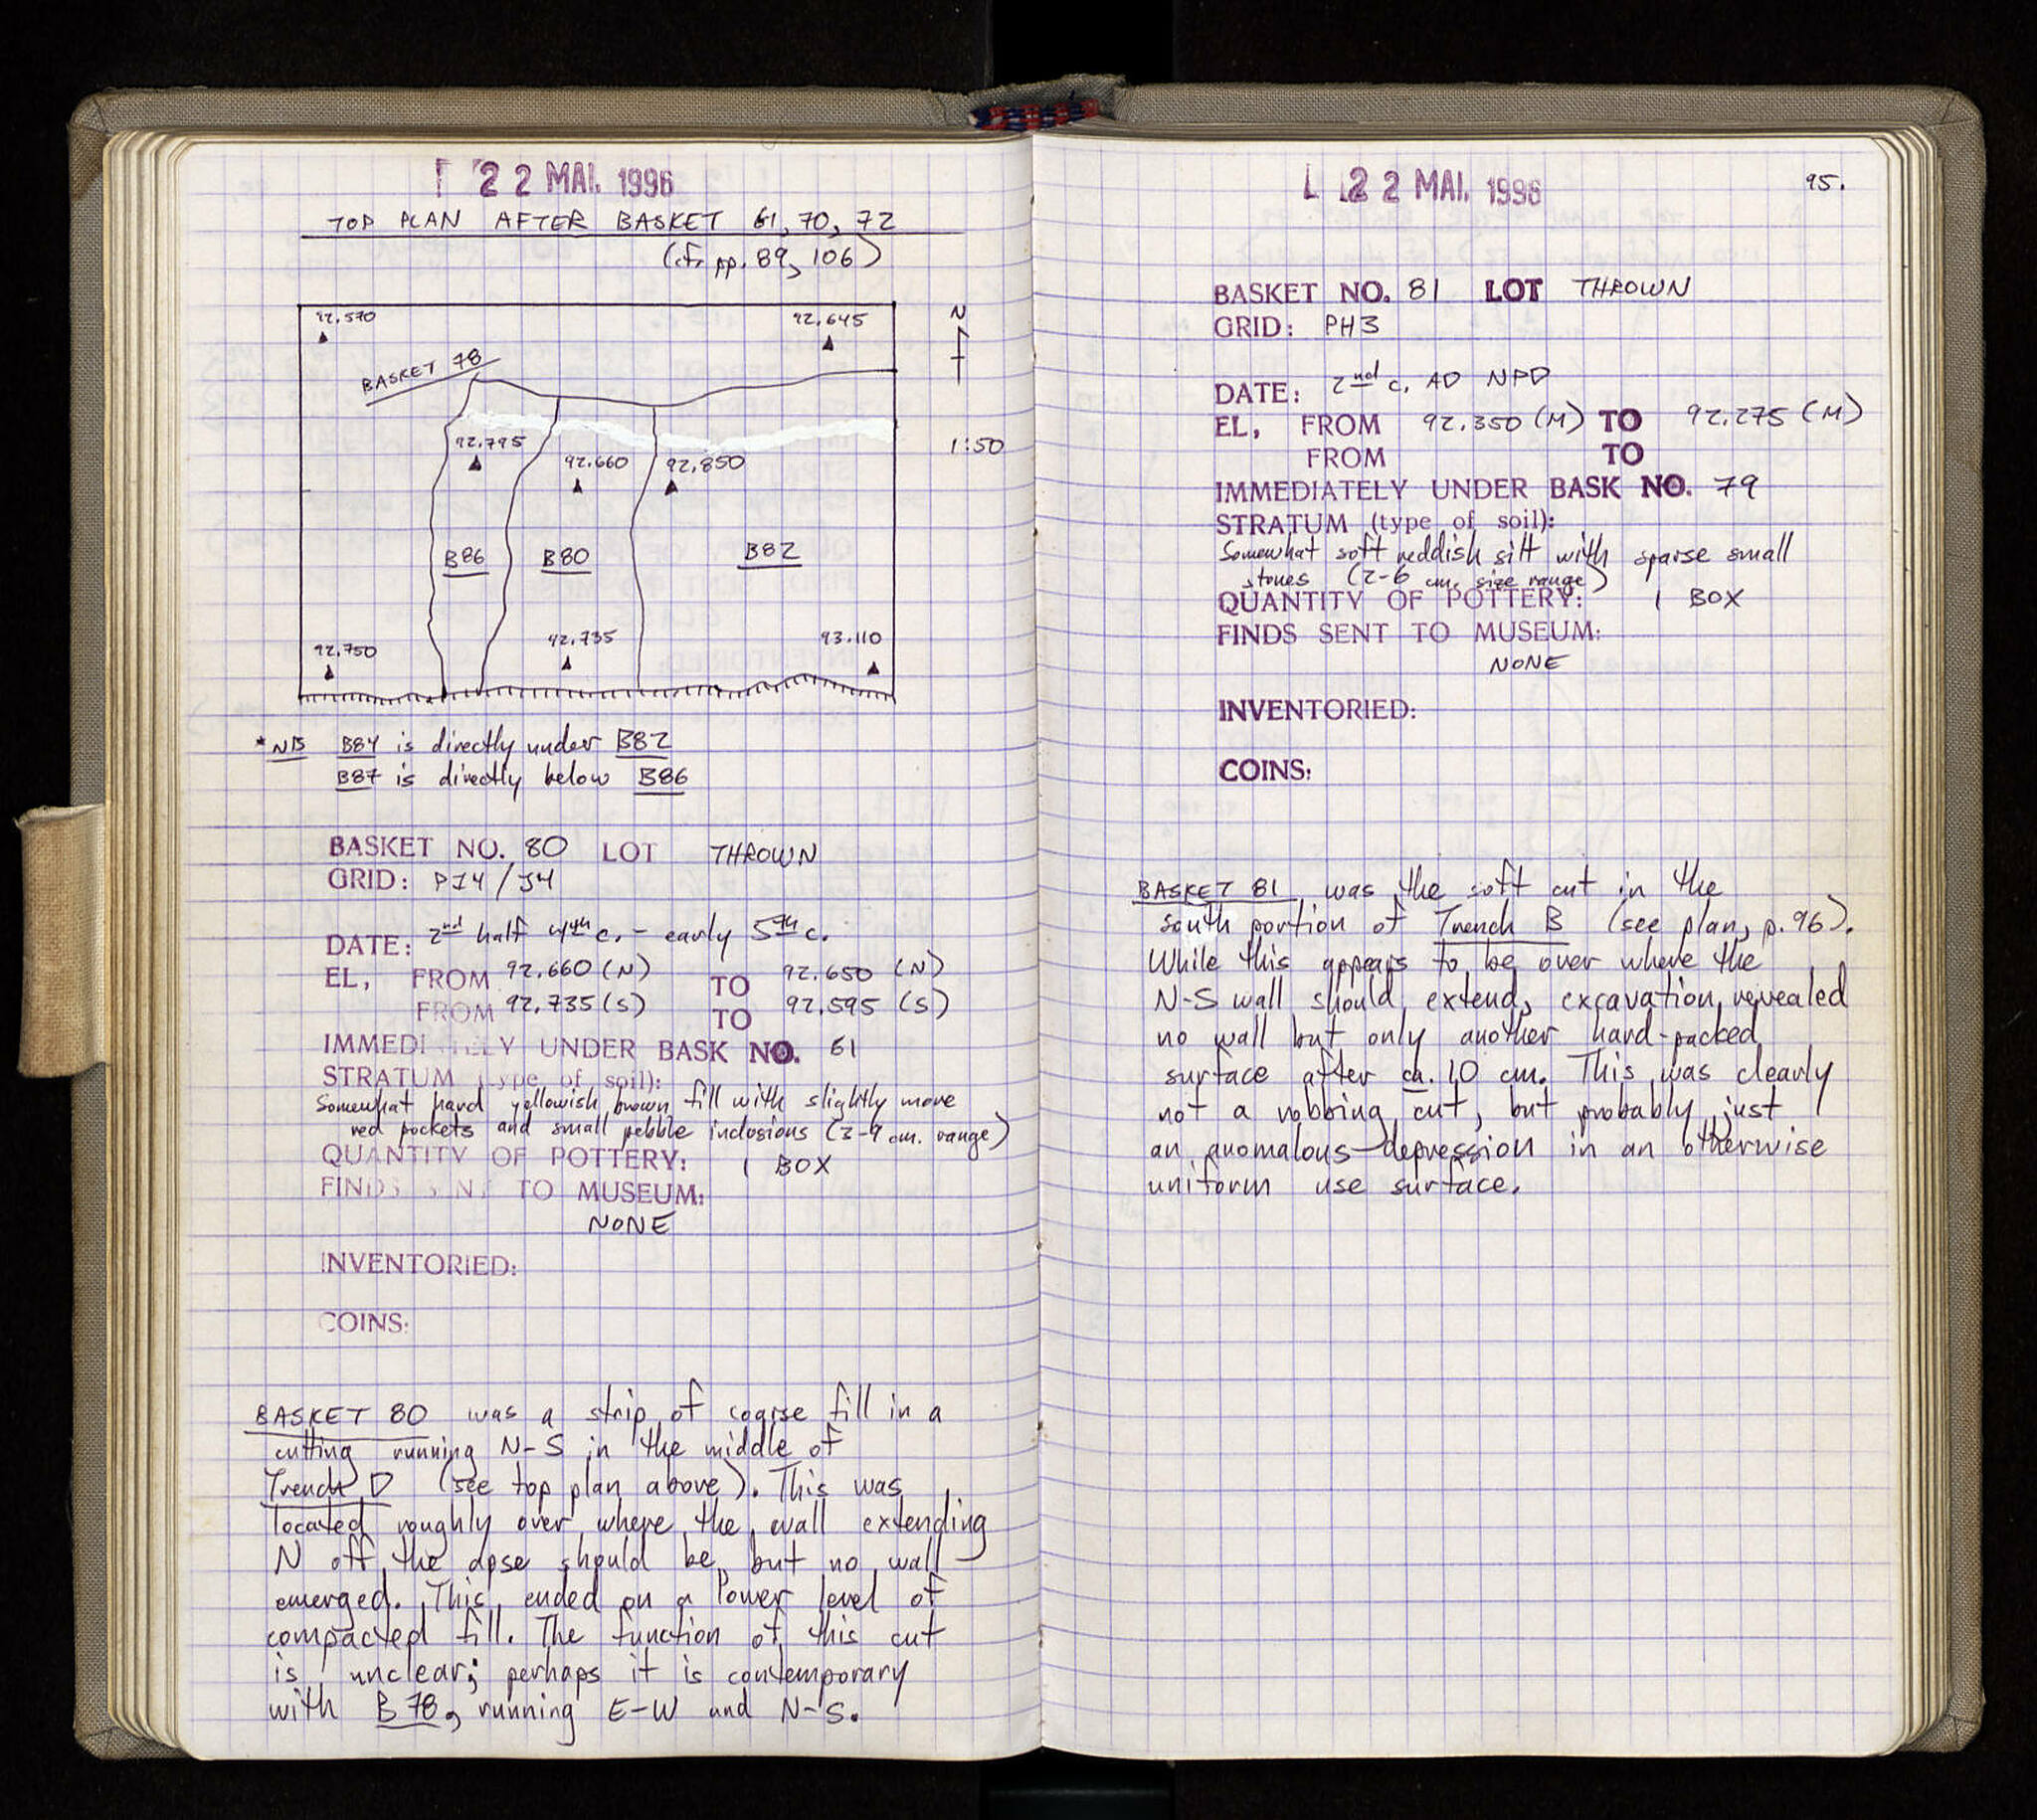 22 MAI. 1996
TOP PLAN AFTER BASKET 61, 70, 72
(cf. pp. 89, 106)
92.570
92.645
N
BASKET 78
92.795
92.660
92.850
1:50
B86
B80
B82
92.750
92.735
93.110
*NB B84 is directly under B82
B87 is directly below B86
BASKET NO. 80 LOT THROWN
GRID: PI4/J4
DATE: 2nd half 4th c. - early 5th c.
EL, FROM 92.660 (N) TO 92.650 (N)
FROM 92.735 (S) TO 92.595 (S)
IMMEDIATELY UNDER BASK NO. 61
STRATUM (type of soil):
Somewhat hard yellowish brown fill with slightly more
red pockets and small pebble inclusions (2-4 cm. range)
QUANTITY OF POTTERY: 1 BOX
FINDS SENT TO MUSEUM:
NONE
INVENTORIED:
COINS:
BASKET 80 was a strip of coarse fill in a
cutting running N-S in the middle of
Trench D (see top plan above). This was
located roughly over where the wall extending
N off the apse should be, but no wall
emerged. This ended on a lower level of
compacted fill. The function of this cut
is unclear; perhaps it is contemporary
with B78, running E-W and N-S.
22 MAI. 1996
95.
BASKET NO. 81 LOT THROWN
GRID: PH3
DATE: 2nd c. AD NPD
EL, FROM 92.350 (M) TO 92.275 (M)
FROM TO
IMMEDIATELY UNDER BASK NO. 79
STRATUM (type of soil):
Somewhat soft reddish silt with sparse small
stones (2-6 cm. size range)
QUANTITY OF POTTERY: 1 BOX
FINDS SENT TO MUSEUM:
NONE
INVENTORIED:
COINS:
BASKET 81 was the soft cut in the
south portion of Trench B (see plan, p. 96).
While this appears to be over where the
N-S wall should extend, excavation revealed
no wall but only another hard-packed
surface after ca. 10 cm. This was clearly
not a robbing cut, but probably just
an anomalous depression in an otherwise
uniform use surface.